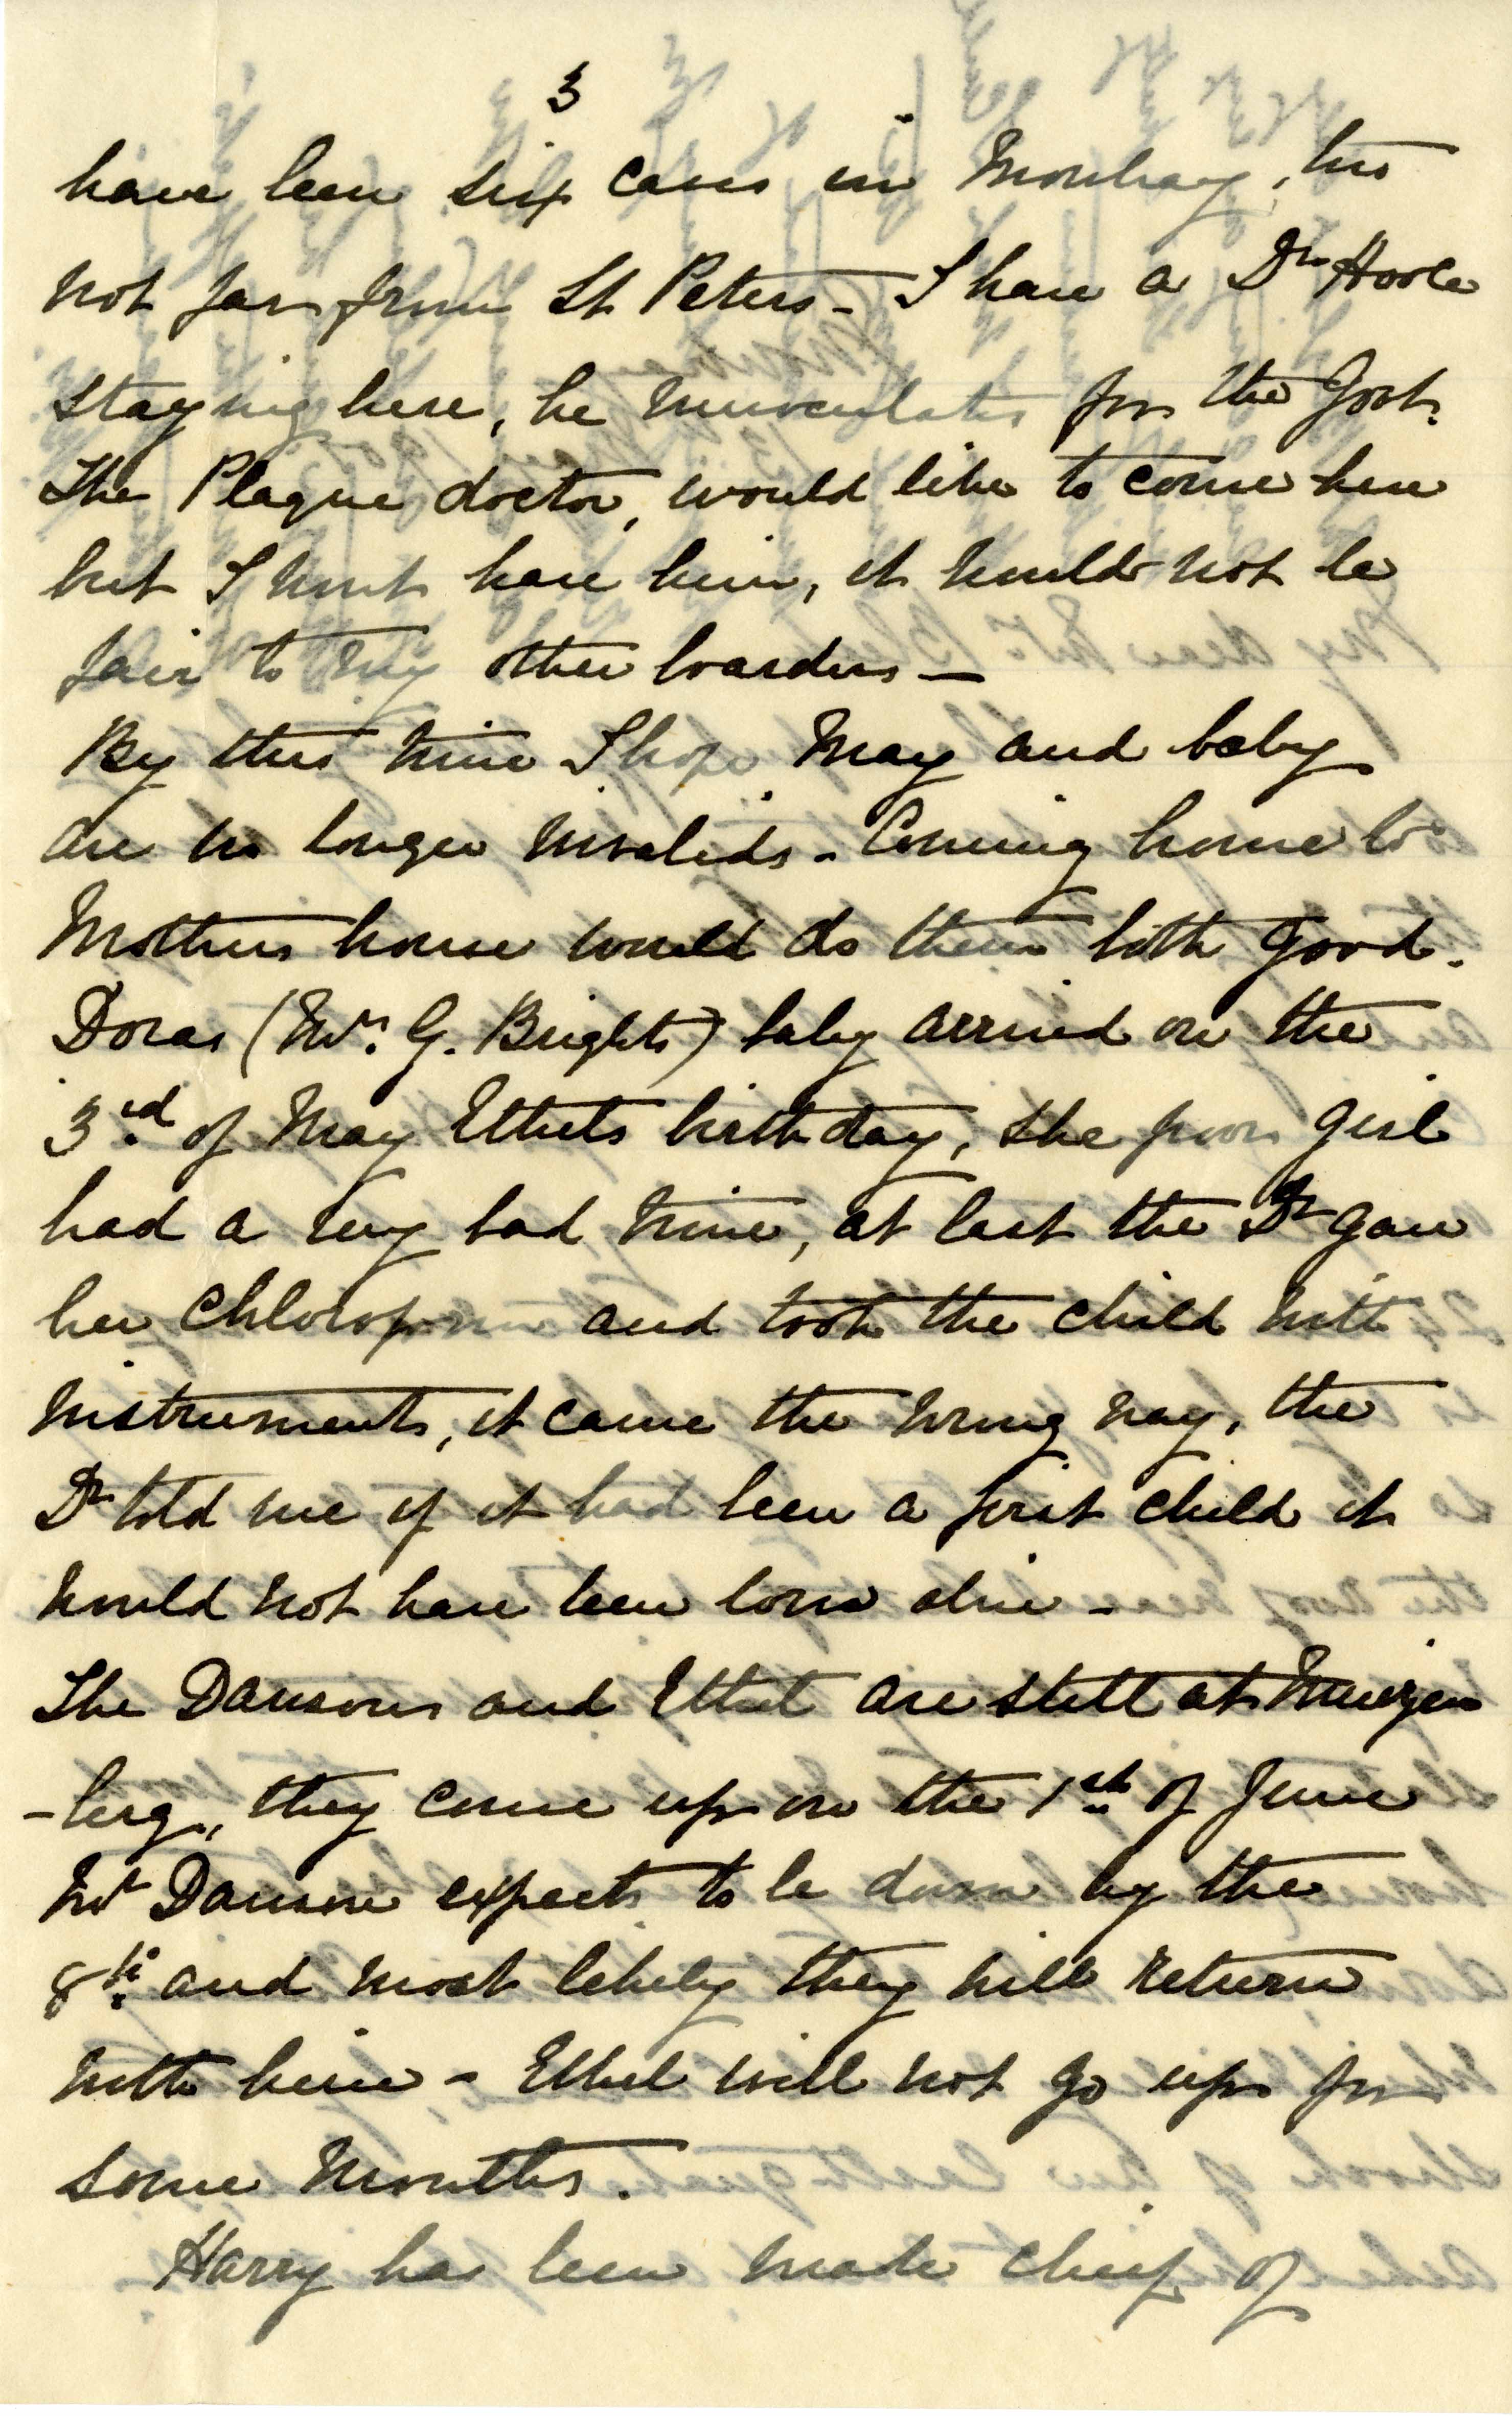 3
have been six cases in Mowbray, two
not far from St Peters - I have a Dr Hoole
staying here, he innoculates for the Govt.
The Plague doctor, would like to come here
but I wont have him, it would not be
fair to my other boarders -
By this time I hope May and baby
are no longer invalids - Coming home to
Mothers house would do them both good.
Doras (Mrs. G. Brights) baby arrived on the
3rd of May Ethels birthday, she poor girl
had a very bad time, at last the Dr gave
her Chloroform and took the child with
instruments, it came the wrong way, the
Dr told me if it had been a first child it
would not have been born alive -
The Dawsons and Ethel are still at Muizen
-berg, they come up on the 1st of June
Mr Dawson expects to be down by the
8th and most likely they will return
with him - Ethel will not go up for
some months.
Harry has been made chief of